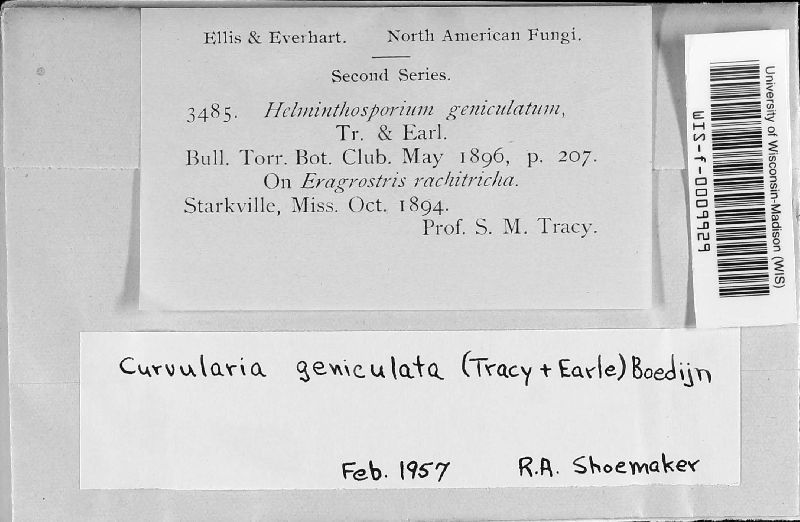 Ellis & Everhart. North American Fungi.
Second Series.
3485. Helminthosporium geniculatum,
Tr. & Earl.
Bull. Torr. Bot. Club. May 1896, p. 207.
On Eragrostris rachitricha.
Starkville, Miss. Oct. 1894.
Prof. S. M. Tracy.
University of Wisconsin-Madison (WIS)
WIS-f-0009929
Curvularia geniculata (Tracy + Earle) Boedijn
Feb. 1957 R.A. Shoemaker